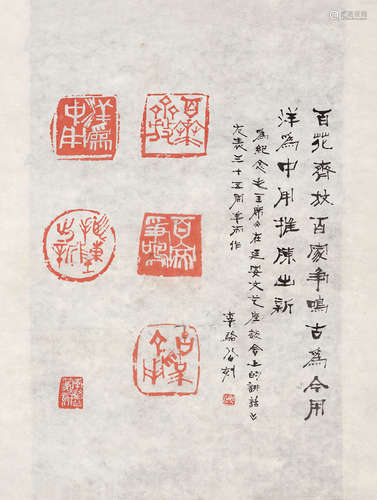 百花齊放百家爭鳴古爲今用
洋爲中用推陳出新
爲紀念毛主席《在延安文艺座談會上的講話》
发表三十五周年而作
李駱公刻
百花齊放
百家爭鳴
古爲今用
洋爲中用
推陳出新